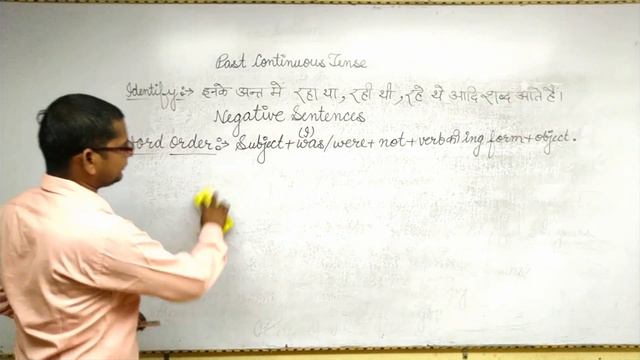 Past Continuous Tense
Identify :→ इनके अन्त में रहा था, रही थी, रहे थे आदि शब्द आते हैं।
Negative Sentences
Word Order :→ Subject + was/were + not + verb की ing form + object.